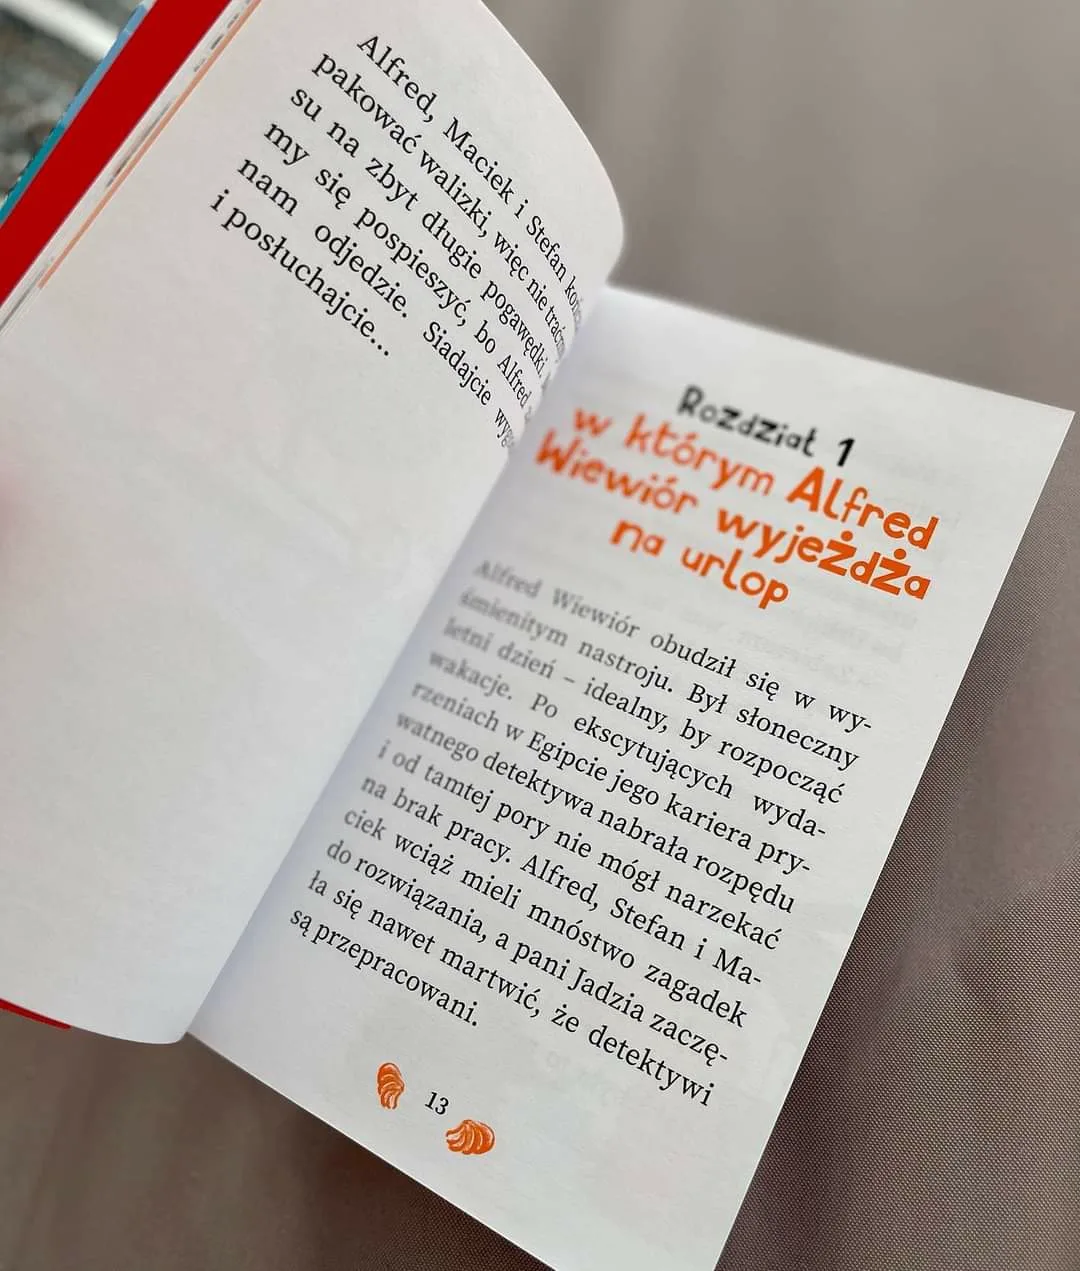 Alfred, Maciek i Stefan
pakować walizki, więc nie
su na zbyt długie pogawędki.
my się pospieszyć, bo Alfred
nam odjedzie. Siadajcie
i posłuchajcie...
Rozdział 1
w którym Alfred
Wiewiór wyjeżdża
na urlop
Alfred Wiewiór obudził się w wy-
śmienitym nastroju. Był słoneczny
letni dzień – idealny, by rozpocząć
wakacje. Po ekscytujących wyda-
rzeniach w Egipcie jego kariera pry-
watnego detektywa nabrała rozpędu
i od tamtej pory nie mógł narzekać
na brak pracy. Alfred, Stefan i Ma-
ciek wciąż mieli mnóstwo zagadek
do rozwiązania, a pani Jadzia zaczę-
ła się nawet martwić, że detektywi
są przepracowani.
13